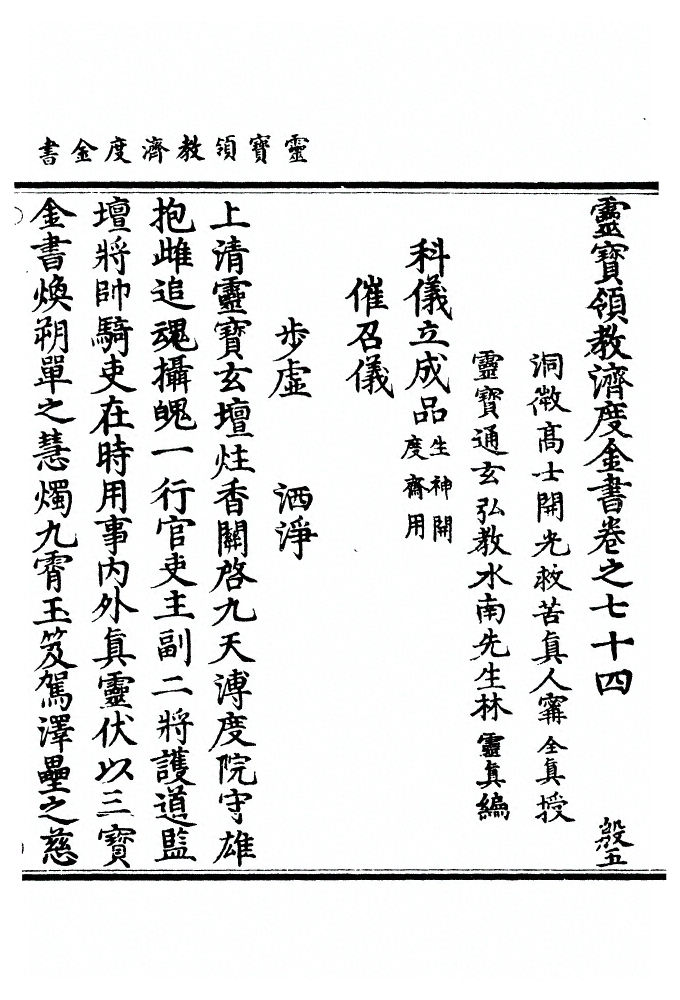 靈寶領教濟度金書
靈寶領教濟度金書卷之七十四 殷五
洞微高士開光救苦眞人寗全眞授
靈寶通玄弘教水南先生林靈眞編
科儀立成品生神開度齋用
催召儀
步虛 洒淨
上清靈寶玄壇炷香關啓九天溥度院守雄
抱雌追魂攝魄一行官吏主副二將護道監
壇將帥騎吏在時用事內外眞靈伏以三寶
金書煥朔單之慧燭九霄玉笈駕澤壘之慈